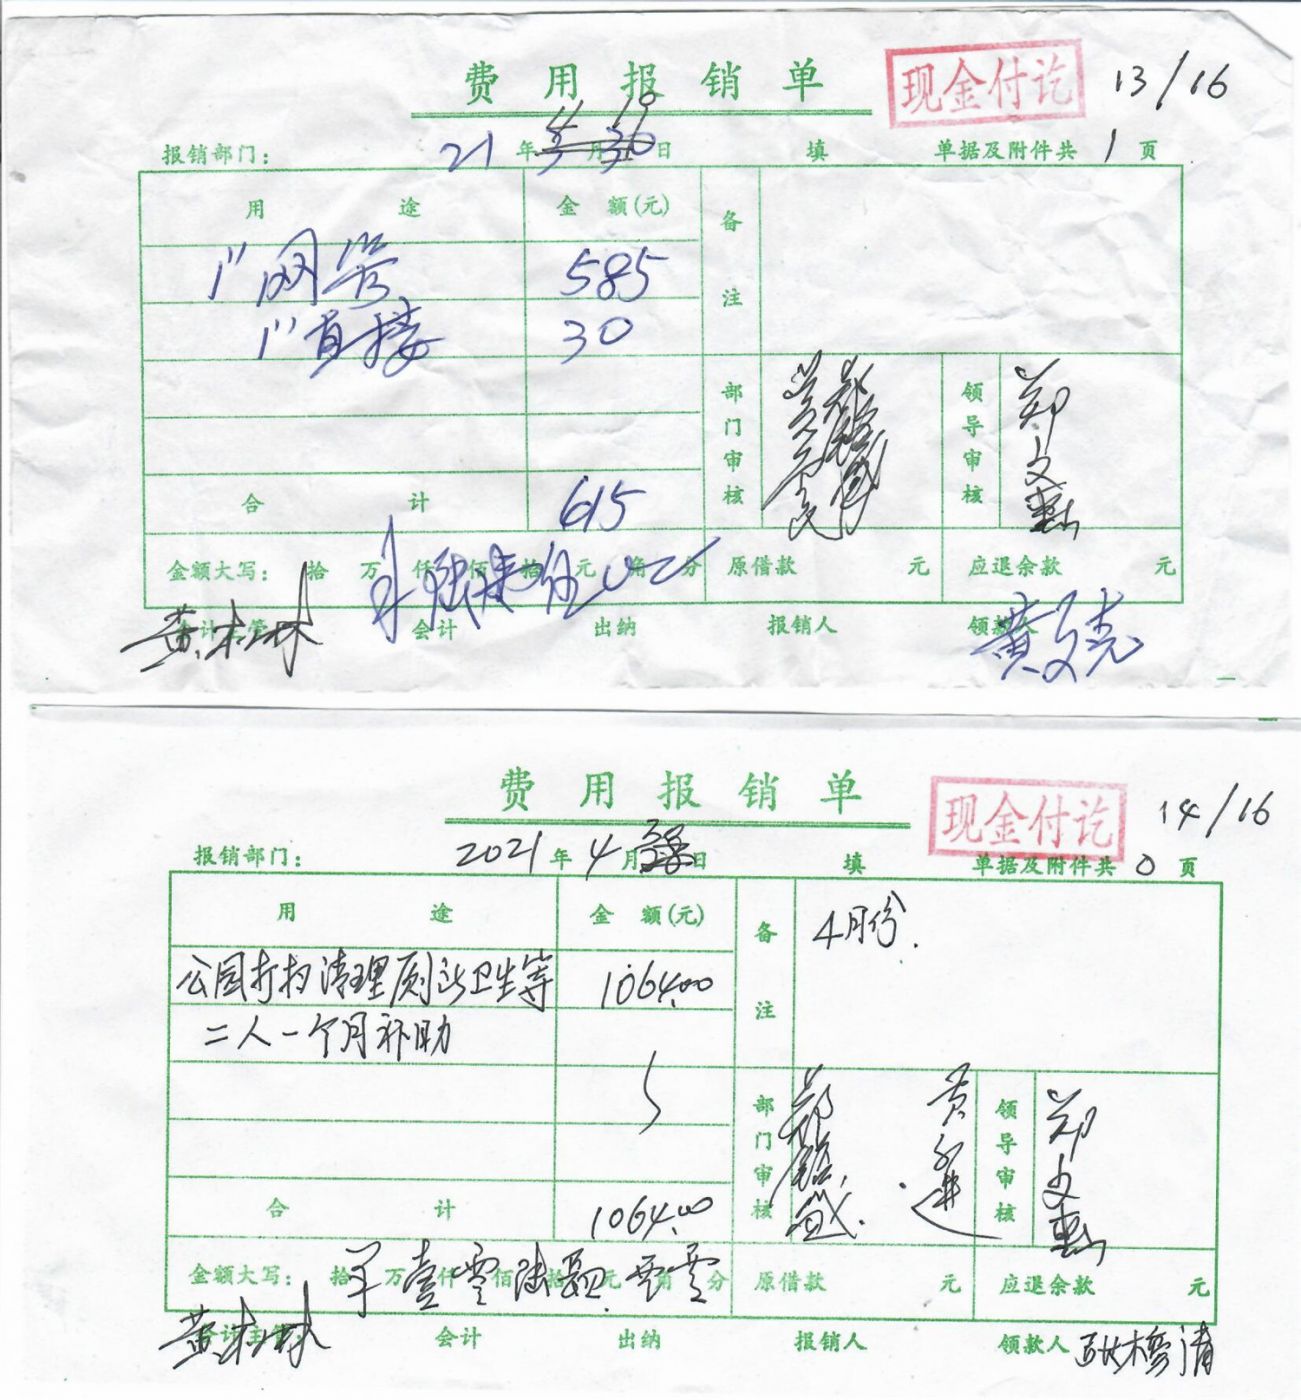 费用报销单
现金付讫
13/16
报销部门：
21年 月 日
填
单据及附件共1页
用途
金额(元)
备注
1"网管
585
1"直接
30
部门审核
领导审核
郑文惠
合计
615
金额大写：拾万仟佰拾元角分
原借款 元
应退余款 元
黄林
会计 出纳 报销人
领款人
黄文亮
费用报销单
现金付讫
14/16
报销部门：
2021年4月 日
填
单据及附件共0页
用途
金额(元)
备注
4月份.
公园打扫清理厕所卫生等
1064.00
二人一个月补助
部门审核
领导审核
郑文惠
合计
1064.00
金额大写：拾万仟佰拾元角分
壹零陆 零零
原借款 元
应退余款 元
会计主管
会计 出纳 报销人 领款人
清